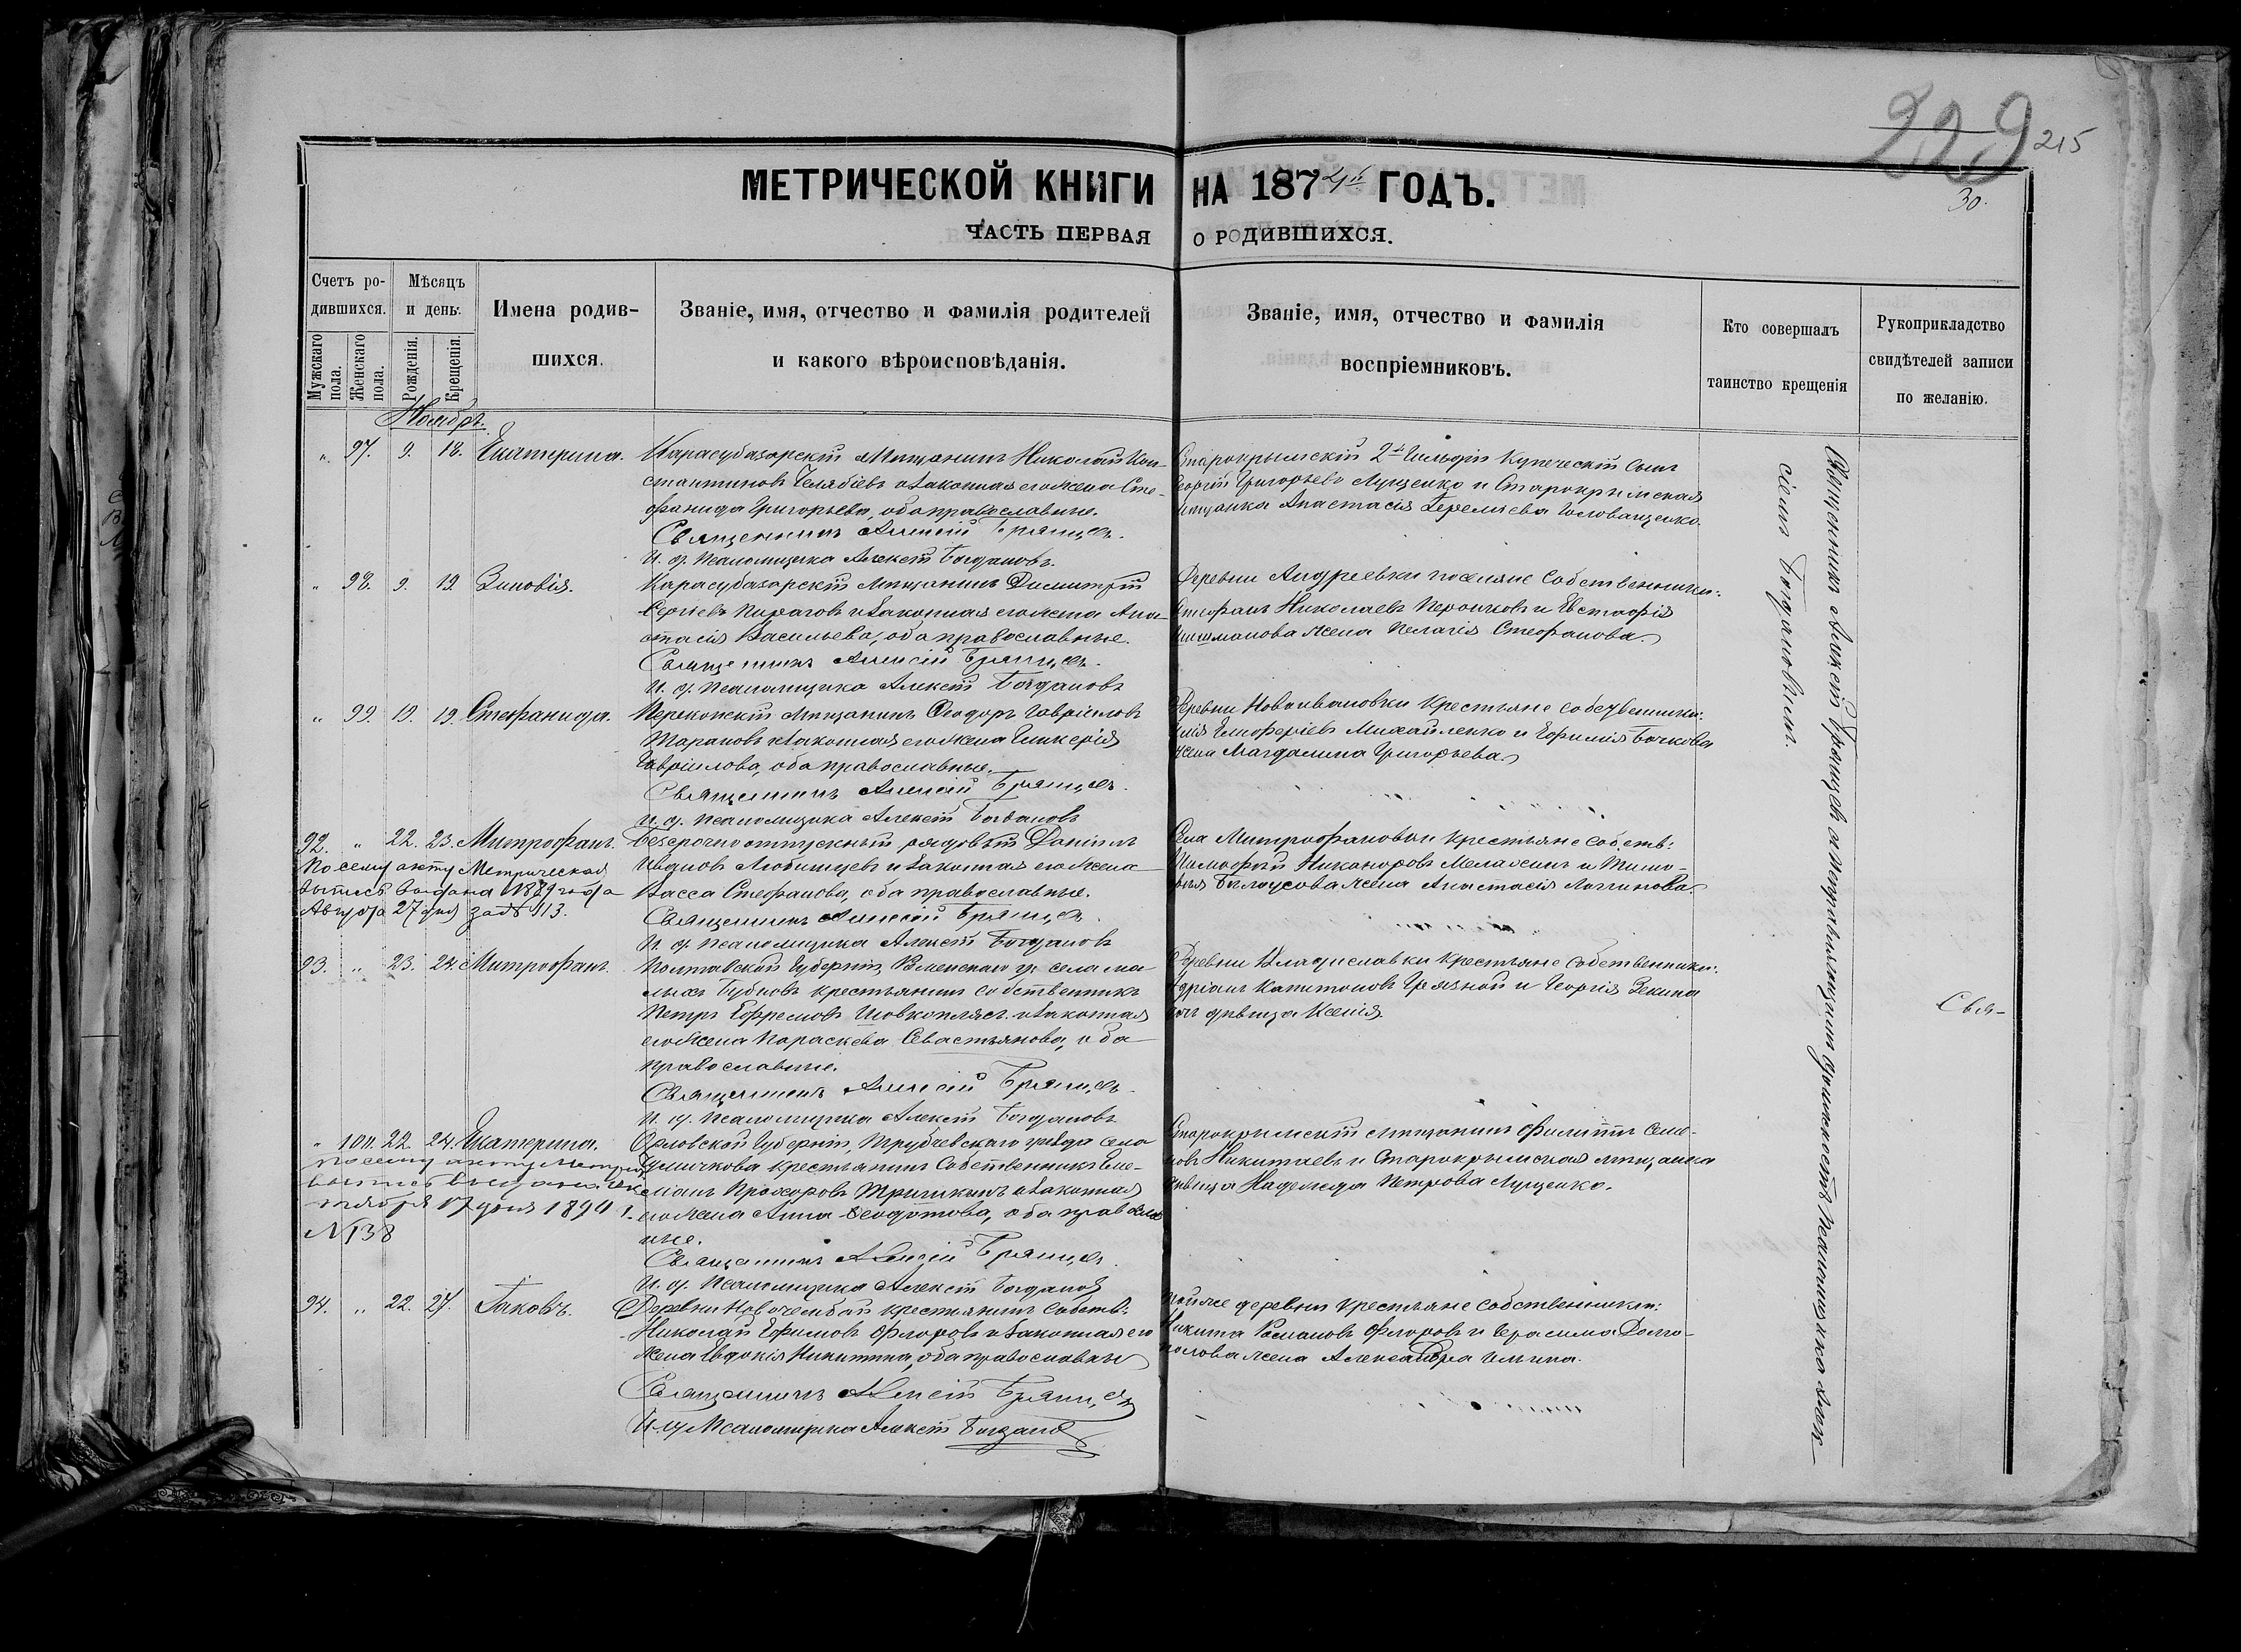 229 215
МЕТРИЧЕСКОЙ КНИГИ НА 1874й ГОДЪ.
30.
ЧАСТЬ ПЕРВАЯ О РОДИВШИХСЯ.
Счетъ ро-
дившихся.
Мужскаго пола.
Женскаго пола.
Мѣсяцъ
и день.
Рожденія.
Крещенія.
Имена родив-
шихся.
Званіе, имя, отчество и фамилія родителей
и какого вѣроисповѣданія.
Званіе, имя, отчество и фамилія
воспріемниковъ.
Кто совершалъ
таинство крещенія
Рукоприкладство
свидѣтелей записи
по желанію.
Ноябрь.
„ 97. 9. 18. Екатерина.
Карасубазарскій Мѣщанинъ Николай Кон-
стантиновъ Челябіевъ и законная его жена Сте-
фанида Григорьева, оба православные.
Священникъ Алексій Брянцевъ.
И. д. Псаломщика Алексѣй Богдановъ.
Старокрымскій 2й Гильдіи Купеческій Сынъ
Георгій Григорьевъ Луценко и Старокрымская
мѣщанка Анастасія
„ 98. 9. 19. Зиновія.
Карасубазарскій Мѣщанинъ Димитрій
Сергіевъ Пираговъ и законная его жена Ана-
стасія Васильева, оба православные.
Священникъ Алексій Брянцевъ.
И. д. Псаломщика Алексѣй Богдановъ
Деревни Андреевки поселяне Собственники:
Стефанъ Николаевъ и Евстафія
Шишманова жена Пелагія Стефанова.
„ 99. 19. 19. Стефанида.
Перекопскій Мѣщанинъ Ѳеодоръ Гавріиловъ
Тарановъ и законная его жена Гликерія
Гавріилова, оба православные.
Священникъ Алексій Брянцевъ.
И. д. Псаломщика Алексѣй Богдановъ
Деревни Новоивановки Крестьяне собственники:
Елиоферіевъ Михайленко и Ефимія Бочкова
жена Магдалина Григорьева.
92. „ 22. 23. Митрофанъ.
По сему акту Метрическая
выпись выдана 1889 года
Августа 27 дня за № 113.
Безсрочноотпускный рядовый Даніилъ
Ивановъ Любимцевъ и законная его жена
Васса Стефанова, оба православные.
Священникъ Алексій Брянцевъ.
И. д. Псаломщика Алексѣй Богдановъ
Села Митрофановки крестьяне собств:
Никаноровъ и Тимо-
фея Бѣлоусова жена Анастасія Логинова.
93. „ 23. 24. Митрофанъ.
Полтавской Губерніи, Роменскаго у. села Ма-
лыхъ Бубновъ крестьянинъ собственникъ
Петръ Ефремовъ Шовкоплясъ и законная
его жена Параскева Севастьянова, оба
православные.
Священникъ Алексій Брянцевъ.
И. д. Псаломщика Алексѣй Богдановъ
Деревни Владиславки крестьяне собственники:
Адріанъ Капитоновъ Грязной и Георгія Зекина
дочь дѣвица Ксенія.
Свя-
„ 100. 22. 24. Екатерина.
По сему акту Метрич.
выпись выдана Ок-
тября 17 дня 1890 г.
№ 138
Орловской Губерніи, Трубчевскаго уѣзда села
крестьянинъ Собственникъ Еме-
ліанъ Прохоровъ Тришкинъ и законная
его жена Анна Ѳеодотова, оба православ-
ные.
Священникъ Алексій Брянцевъ.
И. д. Псаломщика Алексѣй Богдановъ
Старокрымскій мѣщанинъ Филиппъ Семе-
новъ Никитаевъ и Старокрымская мѣщанка
дѣвица Надежда Петрова Луценко.
94. „ 22. 27. Іаковъ.
Деревни крестьянинъ собств:
Николай Ефимовъ Флоровъ и законная его
жена Евдокія Никитина, оба православные
Священникъ Алексій Брянцевъ
И. д. Псаломщика Алексѣй Богдановъ
Той же деревни крестьяне собственники:
Никита Романовъ Флоровъ и Герасима Долго-
полова жена Александра Ильина.
Священникъ Алексій Брянцевъ съ исправляющимъ должность псаломщика Алек-
сіемъ Богдановымъ.